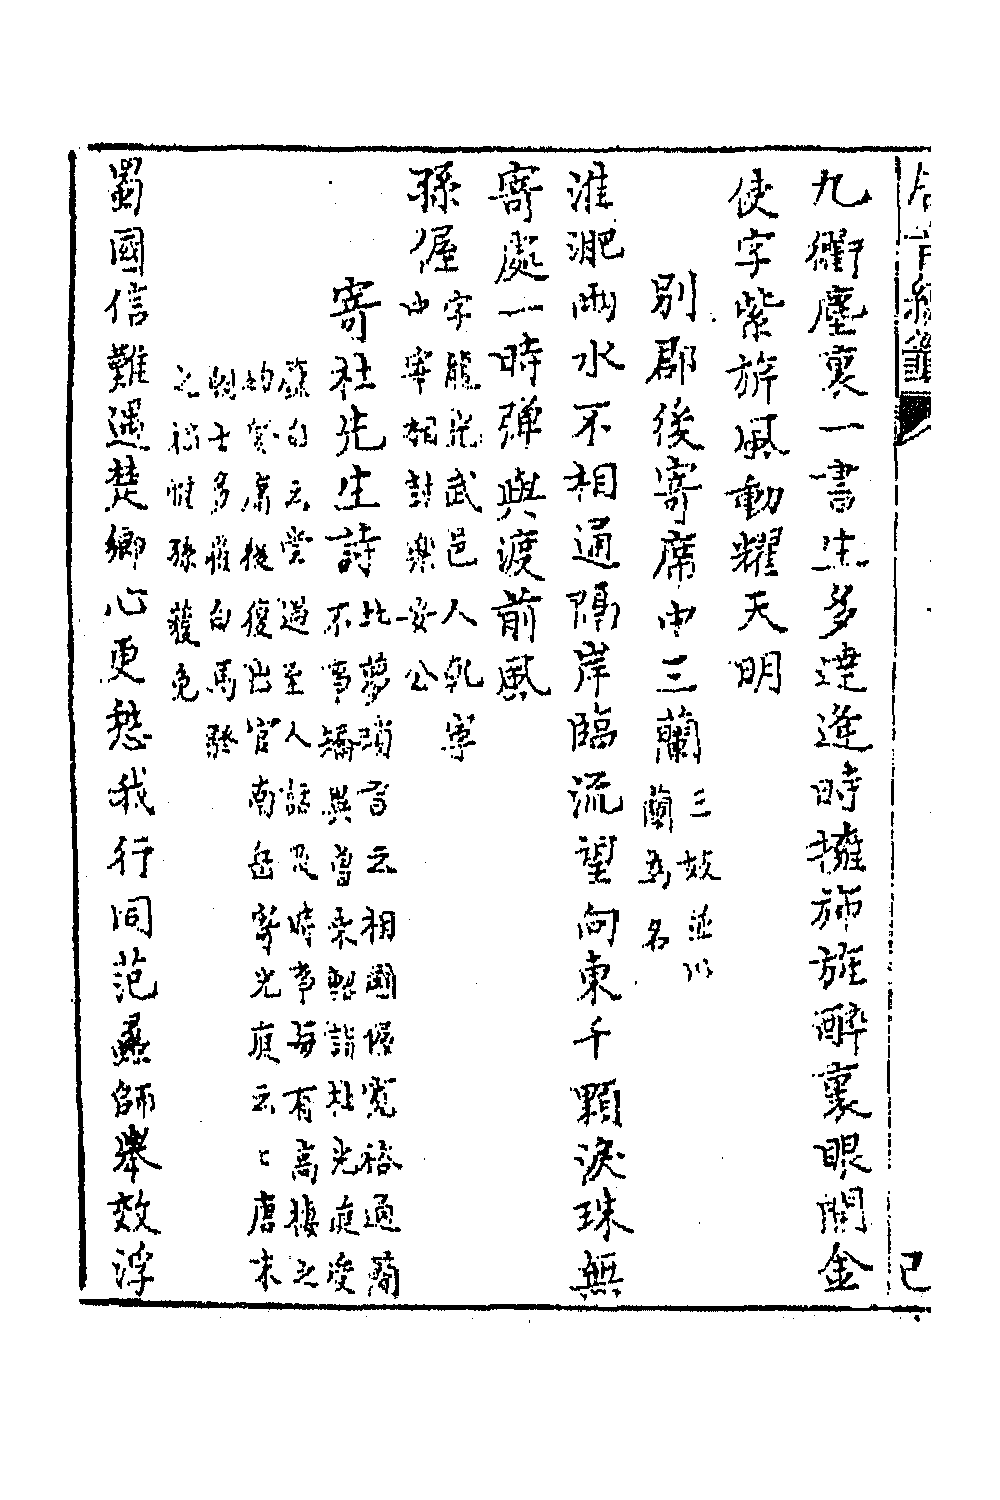 九衢塵裏一書生多達逢時擁斾旌醉裏眼開金
使字紫旂風動耀天明
別郡後寄席中三蘭三妓並以
蘭為名
淮淝兩水不相通隔岸臨流望向東千顆淚珠無
寄處一時彈與渡前風
孫偓字龍光武邑人乾寧
中宰相封樂安公
寄杜先生詩北夢瑣言云相國偓寬裕通簡
不事矯異曾桑鞏詣杜光庭受
籙自云嘗遇至人話及時事每有高棲之
約貶庸從復出官南岳寄光庭云云唐末
朝士多罹白馬發
之禍惟孫獲免
蜀國信難遇楚鄉心更愁我行同范蠡師舉效浮